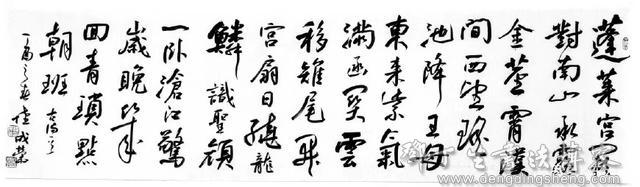 蓬萊宮闕
對南山承露
金莖霄漢
間西望瑤
池降王母
東來紫氣
滿函關雲
移雉尾開
宮扇日繞龍
鱗識聖顏
一卧滄江驚
歲晚幾
回青瑣點
朝班 古詩
丁酉之春
www.dengdingsheng.com